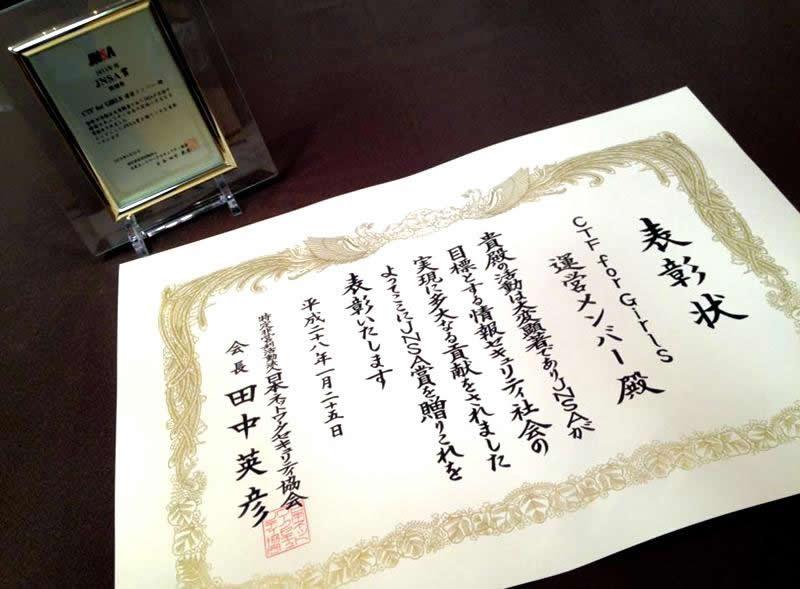 JNSA
JNSA賞
CTF for GIRLS 運営メンバー 殿
表彰状
CTF for GirlS
運営メンバー 殿
貴殿の活動は大変顕著でありJNSAが
目標とする情報セキュリティ社会の
実現に多大なる貢献をされました
よってここにJNSA賞を贈りこれを
表彰いたします
平成二十八年一月二十五日
特定非営利活動法人 日本ネットワークセキュリティ協会
会長 田中英彦